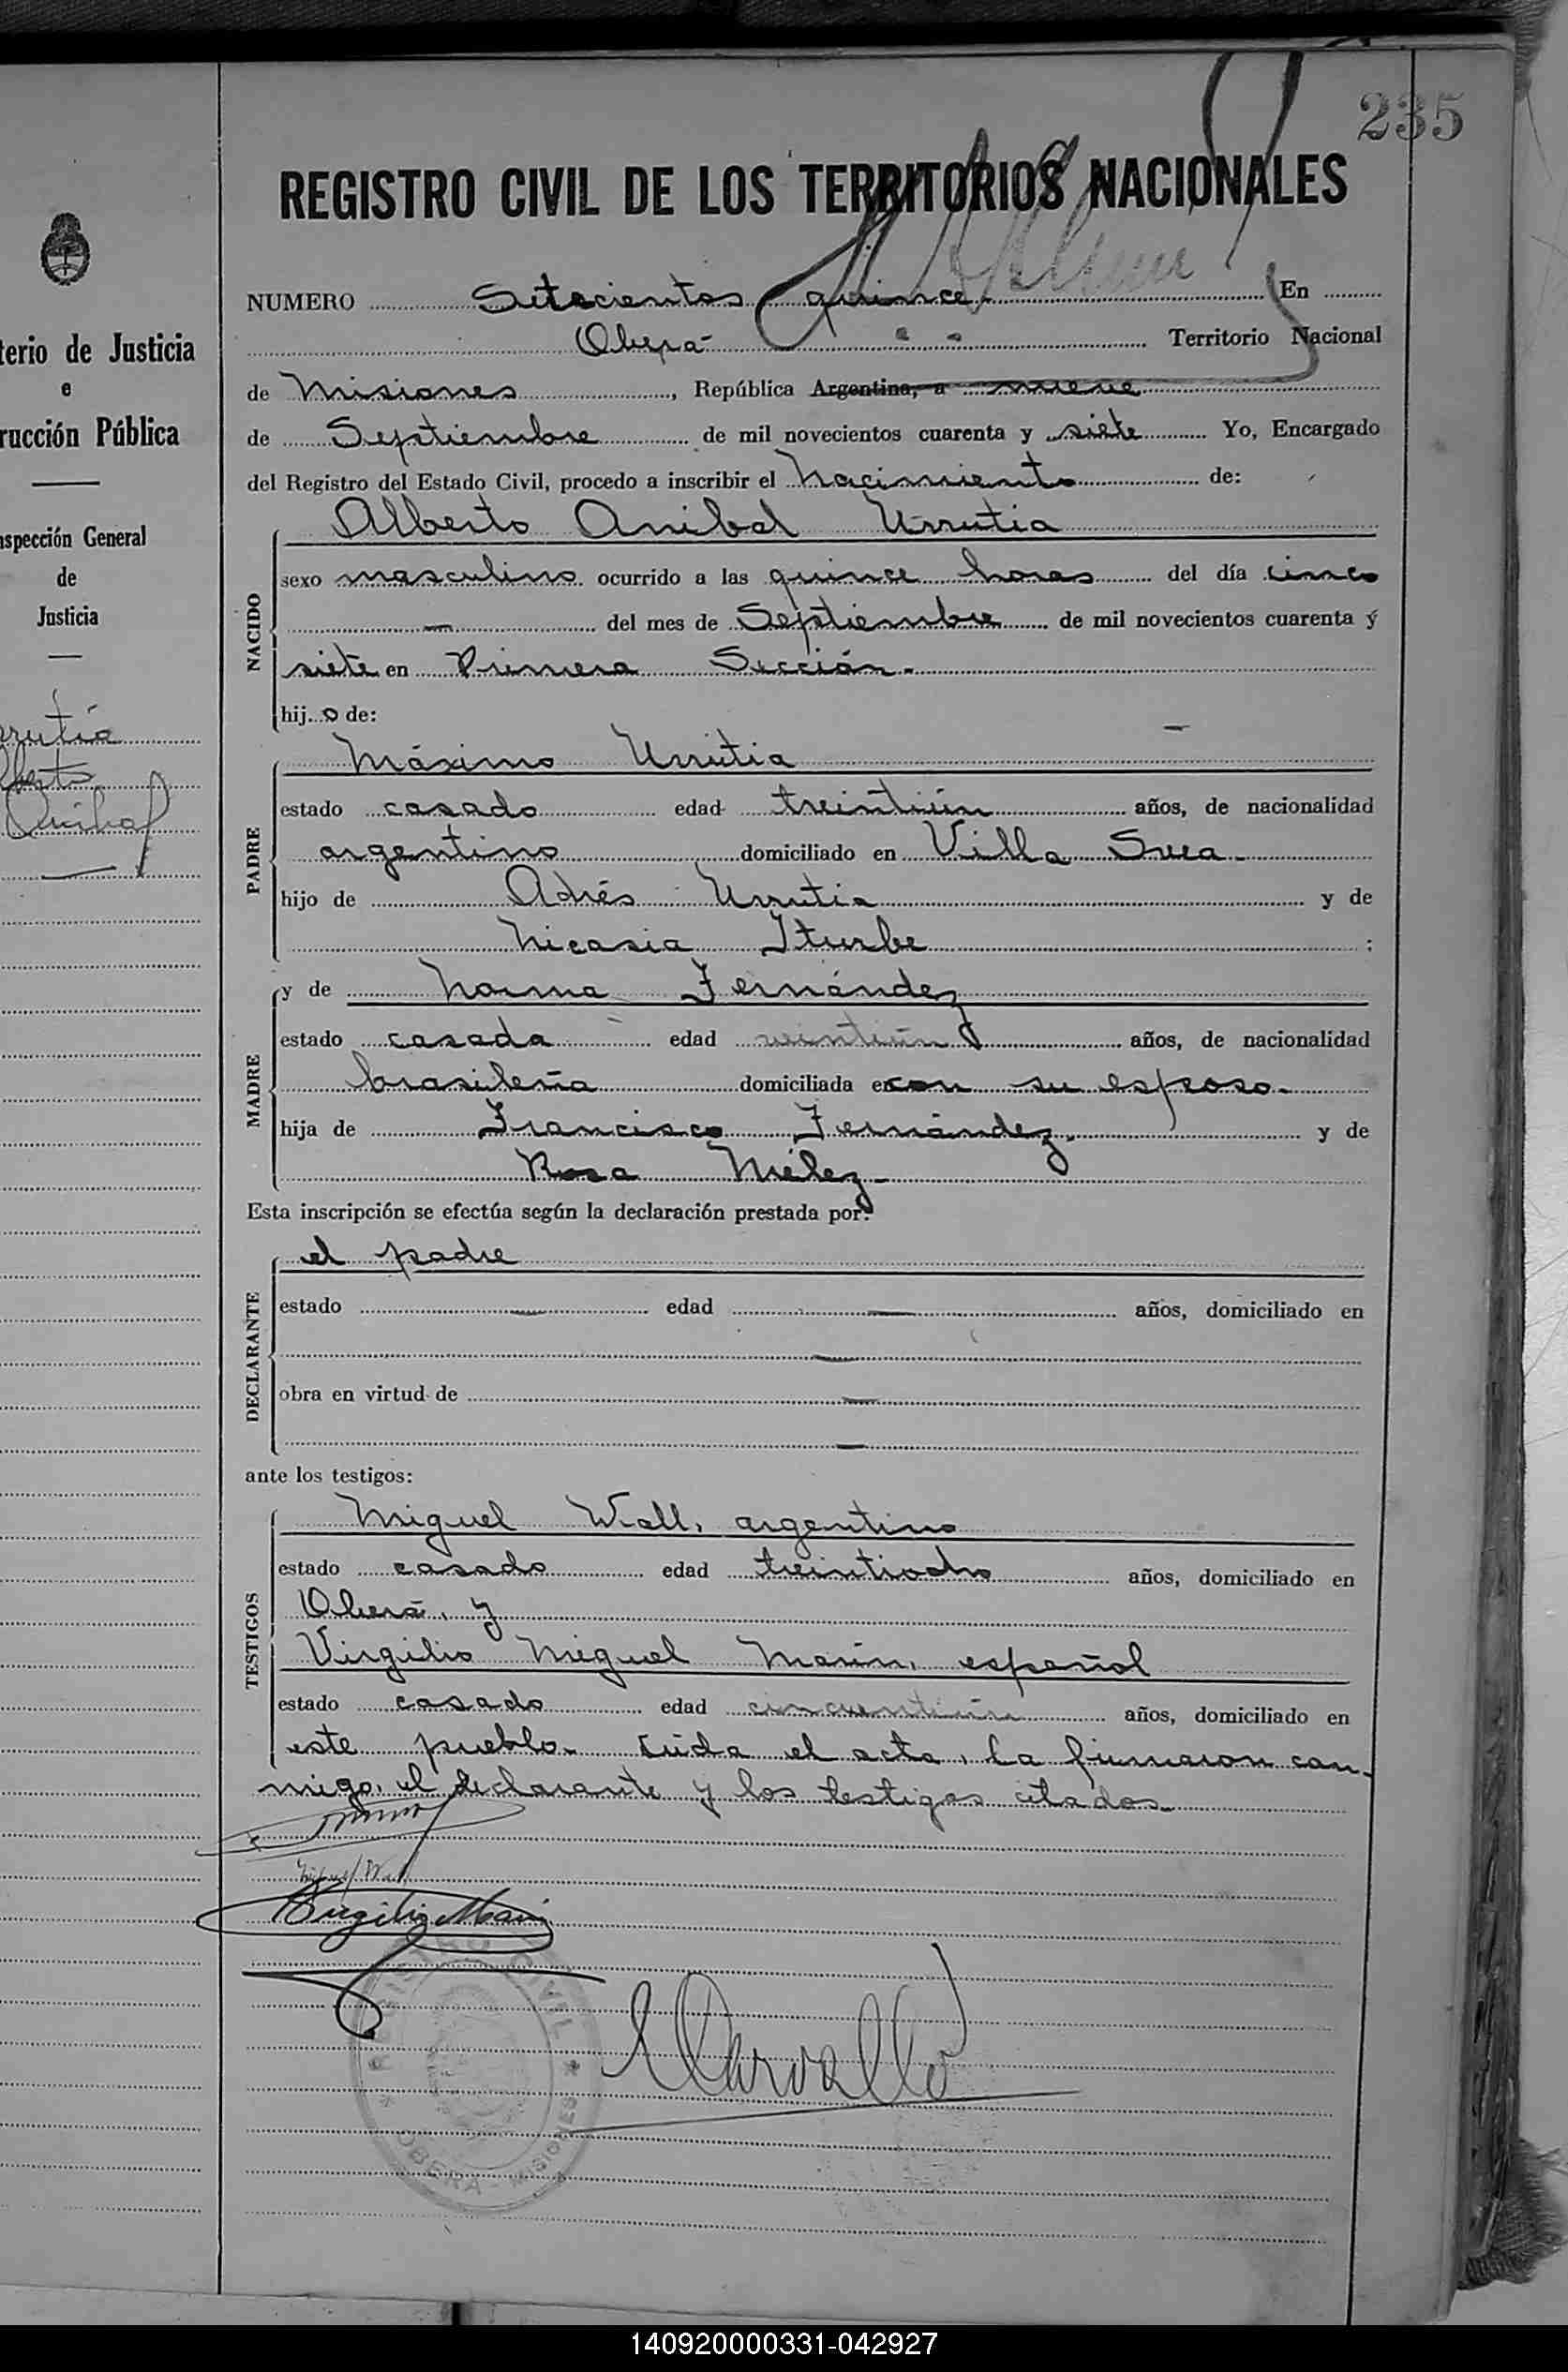 235
REGISTRO CIVIL DE LOS TERRITORIOS NACIONALES
NUMERO Setecientos quince. En
Oberá Territorio Nacional
de Misiones, República Argentina, a nueve
de Septiembre de mil novecientos cuarenta y siete Yo, Encargado
del Registro del Estado Civil, procedo a inscribir el Nacimiento de:
NACIDO
Alberto Anibal Urrutia
sexo masculino ocurrido a las quince horas del día cinco
— del mes de Septiembre de mil novecientos cuarenta y
siete en Primera Sección.
hij o de:
PADRE
Máximo Urrutia
estado casado edad treintiún años, de nacionalidad
argentino domiciliado en Villa Svea.
hijo de Adrés Urrutia y de
Nicasia Iturbe ;
MADRE
y de Norma Fernández
estado casada edad veintiún años, de nacionalidad
brasileña domiciliada en con su esposo.
hija de Francisco Fernández. y de
Rosa Mélez.
Esta inscripción se efectúa según la declaración prestada por:
DECLARANTE
el padre
estado — edad — años, domiciliado en
—
obra en virtud de —
—
ante los testigos:
TESTIGOS
Miguel Wall, argentino
estado casado edad treintiocho años, domiciliado en
Oberá, y
Virgilio Miguel Marín, español
estado casado edad cincuentiún años, domiciliado en
este pueblo. Leída el acta, la firmaron con-
migo, el declarante y los testigos citados.
Miguel Wall
Virgilio Marin
Carvallo
REGISTRO CIVIL
OBERÁ - MISIONES
terio de Justicia
e
rucción Pública
nspección General
de
Justicia
rrutia
lberto
Anibal
140920000331-042927